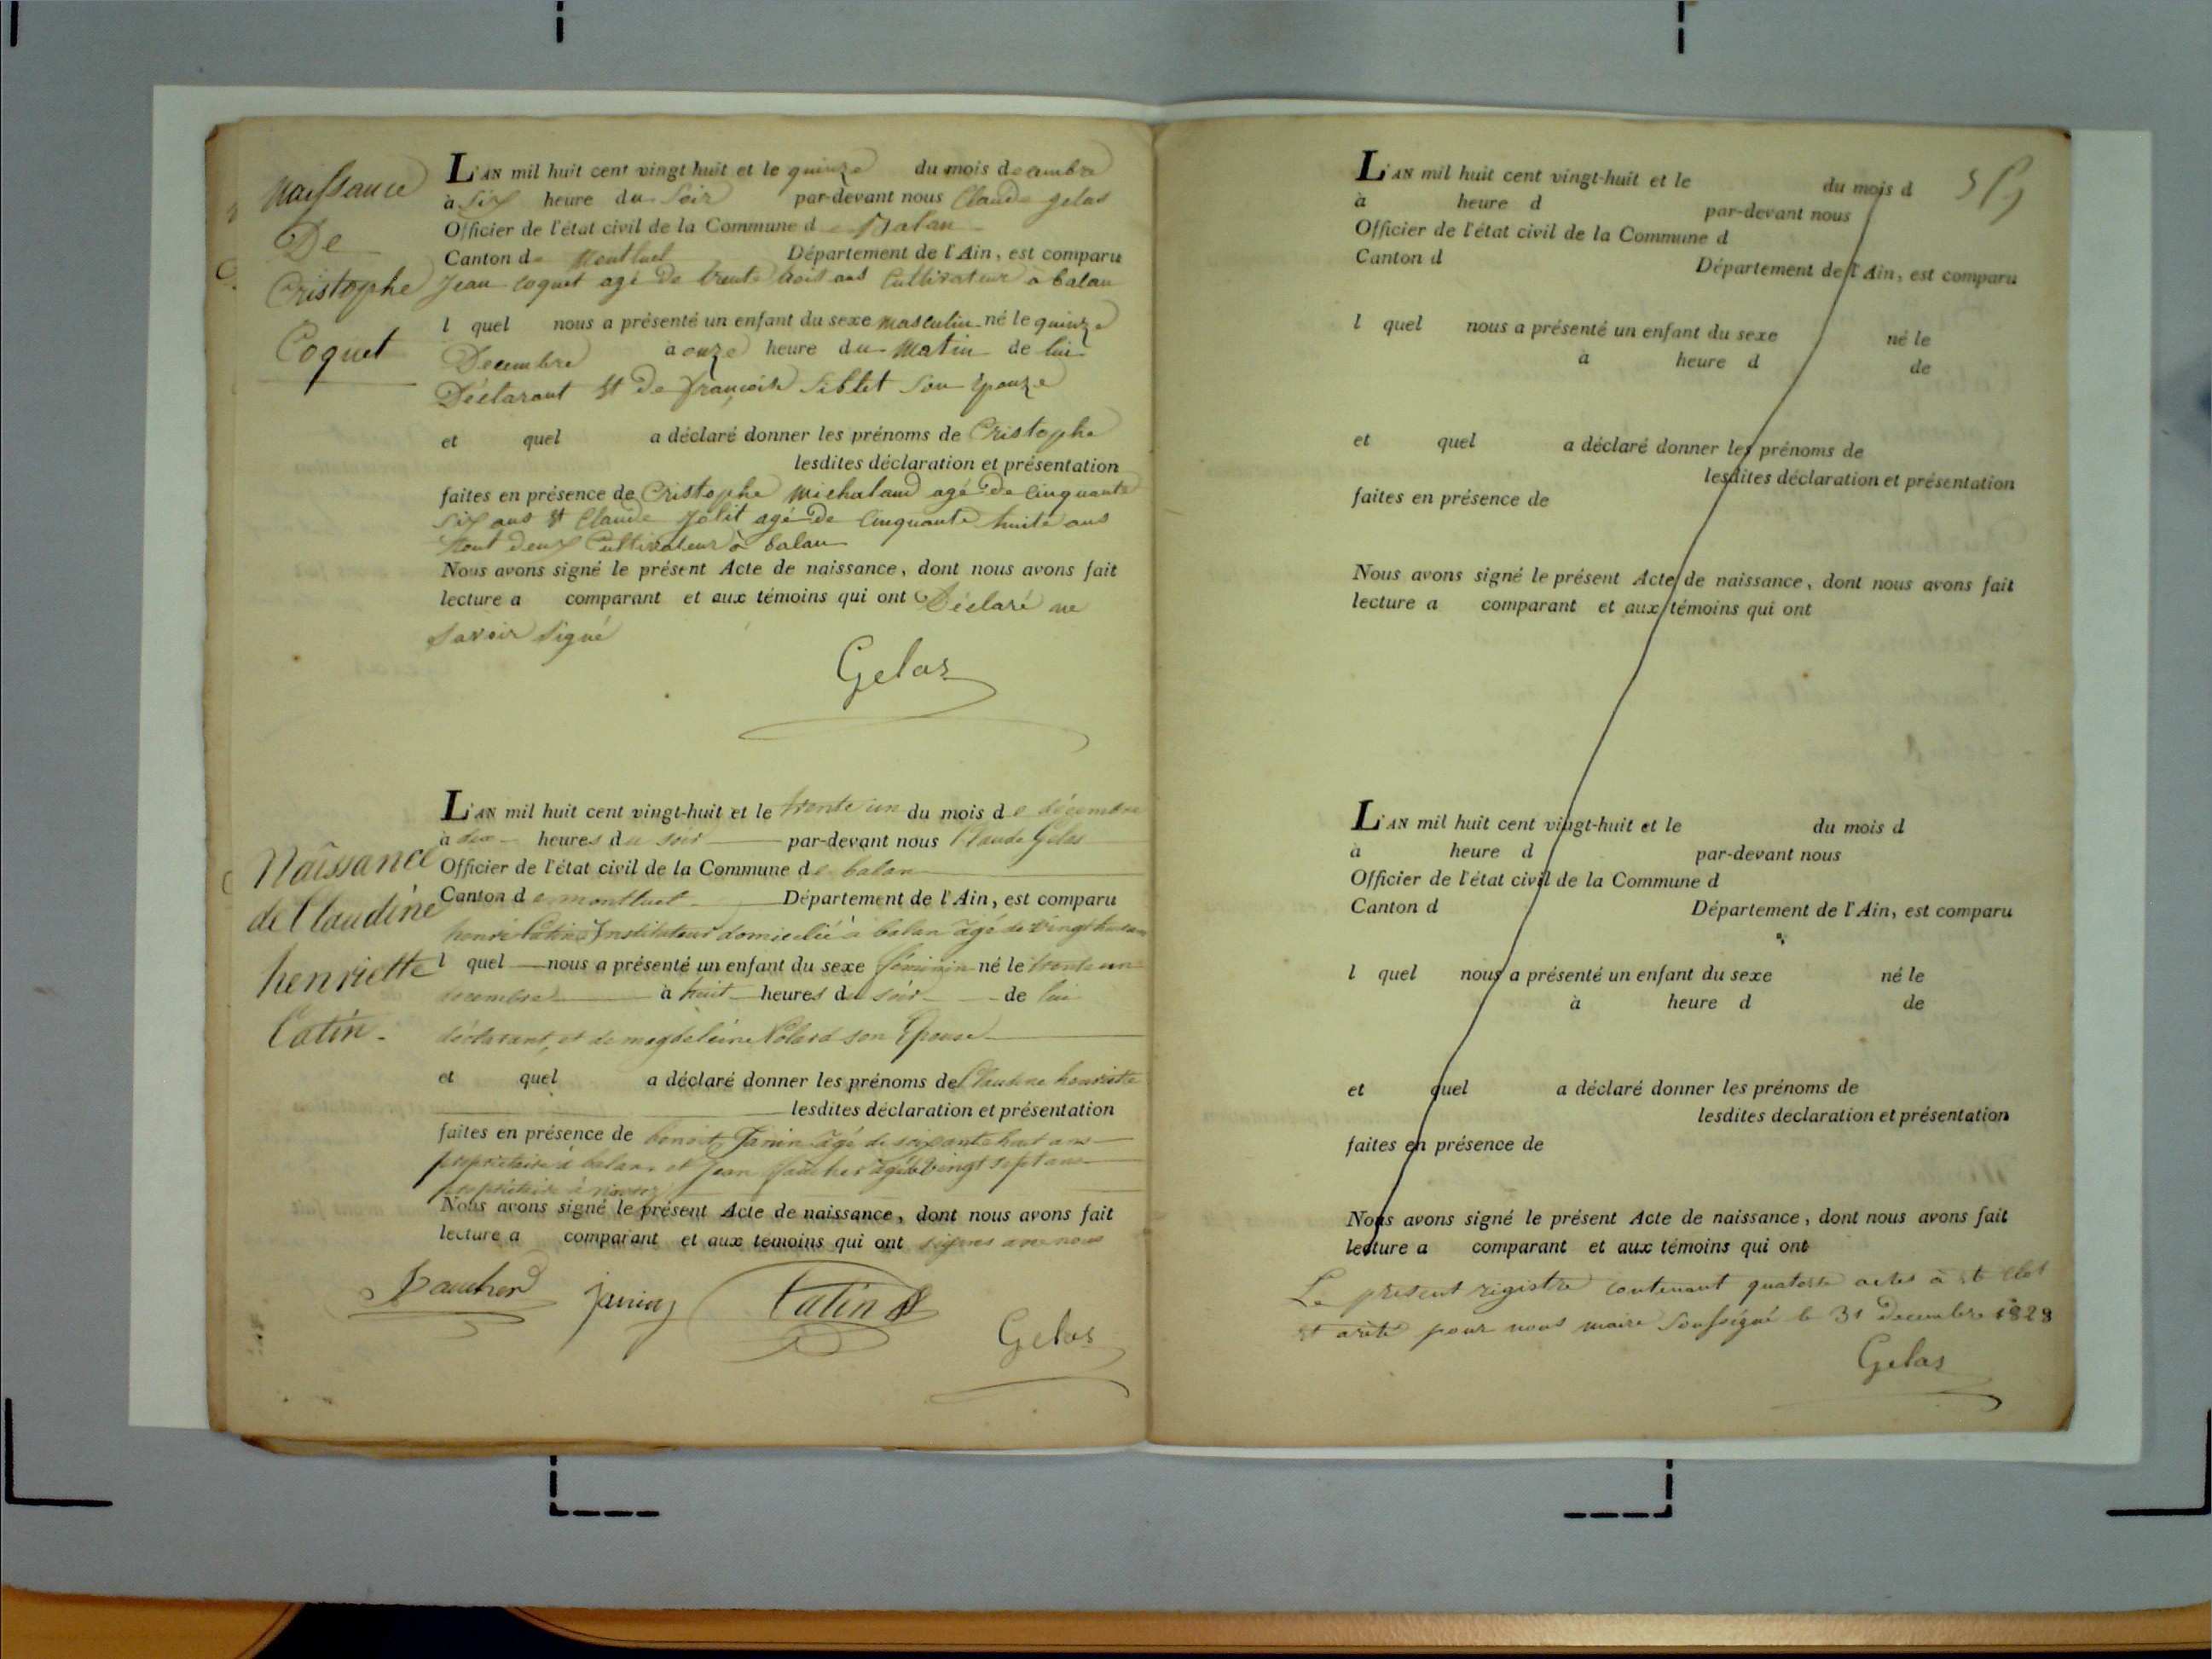 Naissance
De
Cristophe
Coquet
L'AN mil huit cent vingt-huit et le quinze du mois decembre
à six heure du soir par-devant nous Claude gelas
Officier de l'état civil de la Commune de Balan
Canton de Montluel Département de l'Ain, est comparu
Jean Coquet agé de trente trois ans Cultivateur à balan
l quel nous a présenté un enfant du sexe masculin né le quinze
Decembre à onze heure du matin de lui
Déclarant et De françoise siblet son Epouze
et quel a déclaré donner les prénoms de Cristophe
lesdites déclaration et présentation
faites en présence de Cristophe Michalaud agé De Cinquante
six ans et Claude Jolit agé De Cinquante huite ans
tout deux Cultivateur à balan
Nous avons signé le présent Acte de naissance, dont nous avons fait
lecture a comparant et aux témoins qui ont Déclaré ne
savoir signé
Gelas
Naissance
de Claudine
henriette
Catin.
L'AN mil huit cent vingt-huit et le trente un du mois de décembre
à dix heures du soir par-devant nous Claude Gelas
Officier de l'état civil de la Commune de balan
Canton de montluel Département de l'Ain, est comparu
henri Catin Instituteur domicilié à balan âgé de vingt huit ans
l quel nous a présenté un enfant du sexe féminin né le trente un
decembre à huit heures du soir de lui
déclarant, et de magdeleine Polard son Epouse
et quel a déclaré donner les prénoms de Claudine henriette
lesdites déclaration et présentation
faites en présence de benoit Janin âgé de soixante huit ans
propriétaire à balan et Jean faucher âgé de vingt sept ans
propriétaire à
Nous avons signé le présent Acte de naissance, dont nous avons fait
lecture a comparant et aux témoins qui ont signés avec nous
Janin Catin
Gelas
L'AN mil huit cent vingt-huit et le du mois d
à heure d par-devant nous
Officier de l'état civil de la Commune d
Canton d Département de l'Ain, est comparu
l quel nous a présenté un enfant du sexe né le
à heure d de
et quel a déclaré donner les prénoms de
lesdites déclaration et présentation
faites en présence de
Nous avons signé le présent Acte de naissance, dont nous avons fait
lecture a comparant et aux témoins qui ont
L'AN mil huit cent vingt-huit et le du mois d
à heure d par-devant nous
Officier de l'état civil de la Commune d
Canton d Département de l'Ain, est comparu
l quel nous a présenté un enfant du sexe né le
à heure d de
et quel a déclaré donner les prénoms de
lesdites declaration et présentation
faites en présence de
Nous avons signé le présent Acte de naissance, dont nous avons fait
lecture a comparant et aux témoins qui ont
Le present registre contenant quatorse actes à été clos
et arèté pour nous maire soussigné le 31 decembre 1828
Gelas